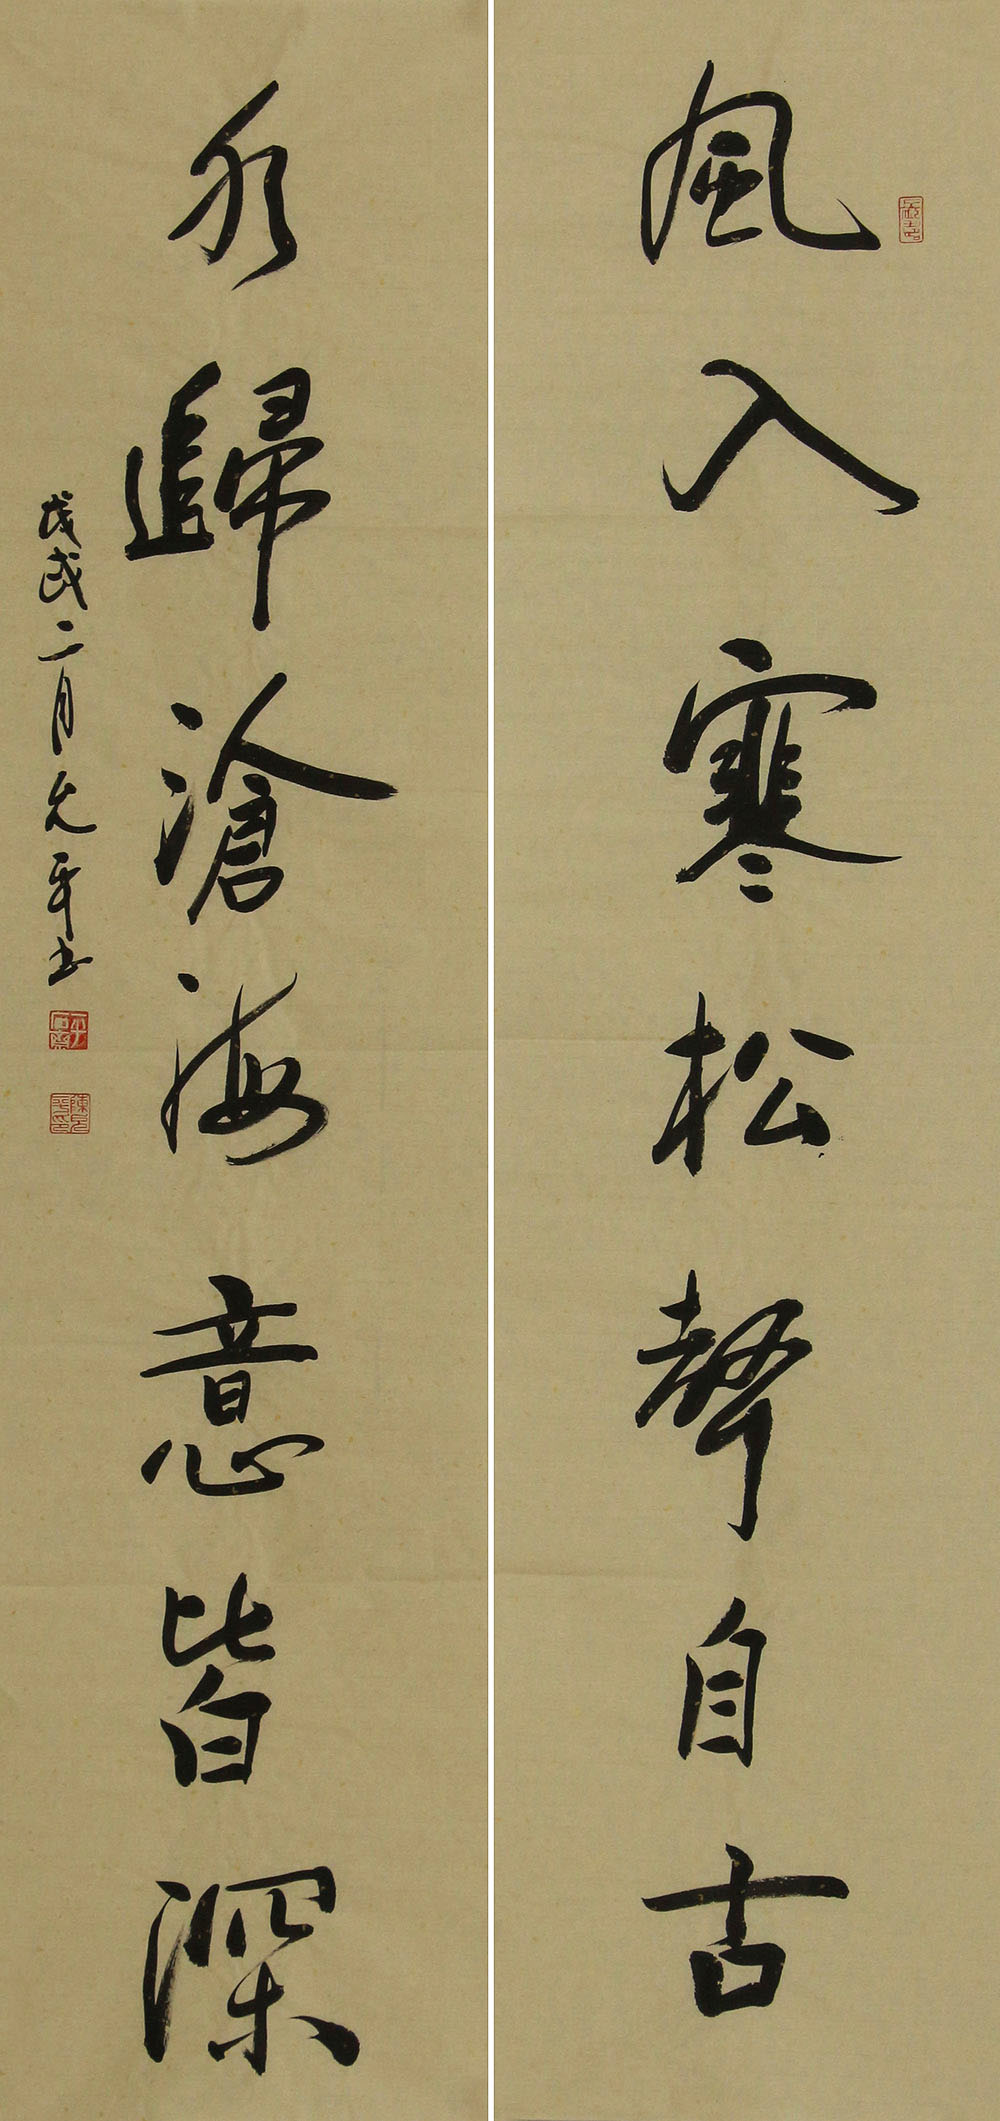 風入寒松聲自古
水歸滄海意皆深
戊戌二月允平書